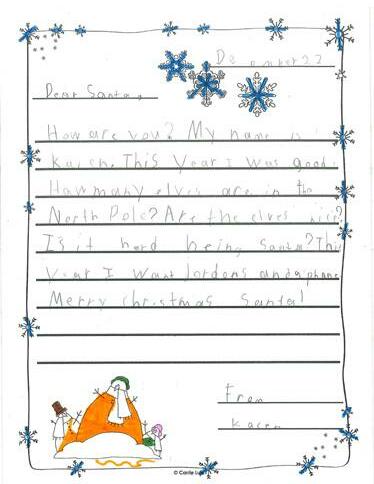 De ember 22
Dear Santa,
How are you? My name is
This Year I was good.
How many elves are in the
North Pole? Are the elves nice?
Is it hard being santa? This
Year I want Jordons and a phone
Merry christmas Santa!
From